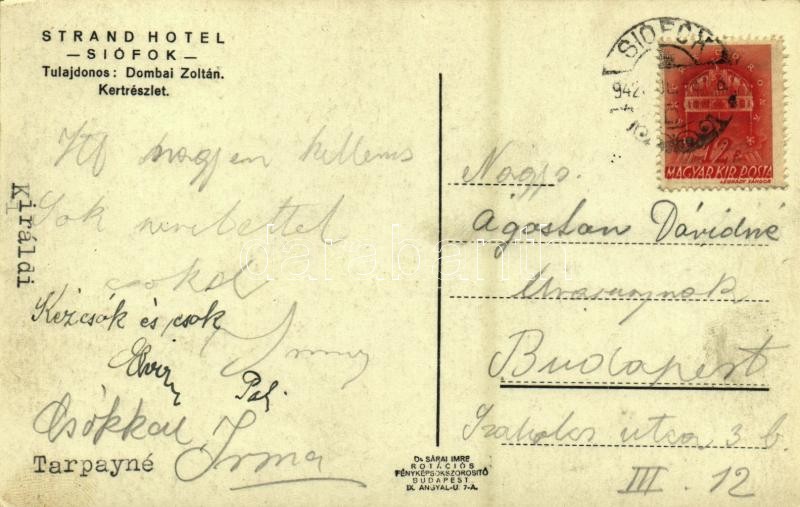 STRAND HOTEL
— SIÓFOK —
Tulajdonos: Dombai Zoltán.
Kertrészlet.
Itt nagyon kellems
Sok szeretettel
csokol
Kézcsók és csók
Pali
Csókkal Irma
Tarpayné
Királdi
SIÓFOK
942
12
MAGYAR KIR. POSTA
Nagys.
Ágoston Dávidné
Budapest
Szabolcs utca 3 b.
III. 12
Dr SÁRAI IMRE
ROTÁCIÓS
FÉNYKÉPSOKSZOROSITÓ
BUDAPEST
IX. ANGYAL-U. 7-A.
darabanth